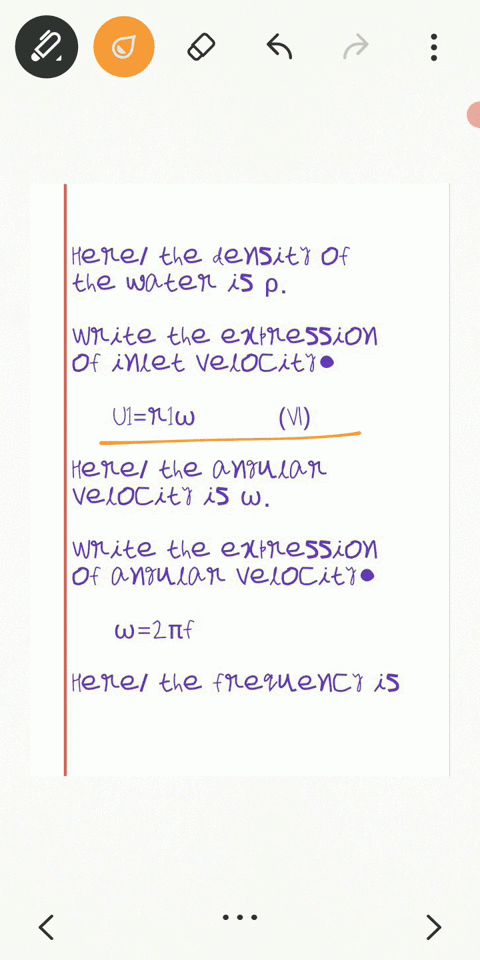 Here/ the density of
the water is ρ.
Write the expression
of inlet velocity●
U1=r1ω (VI)
Here/ the angular
velocity is ω.
Write the expression
of angular velocity●
ω=2πf
Here/ the frequency is